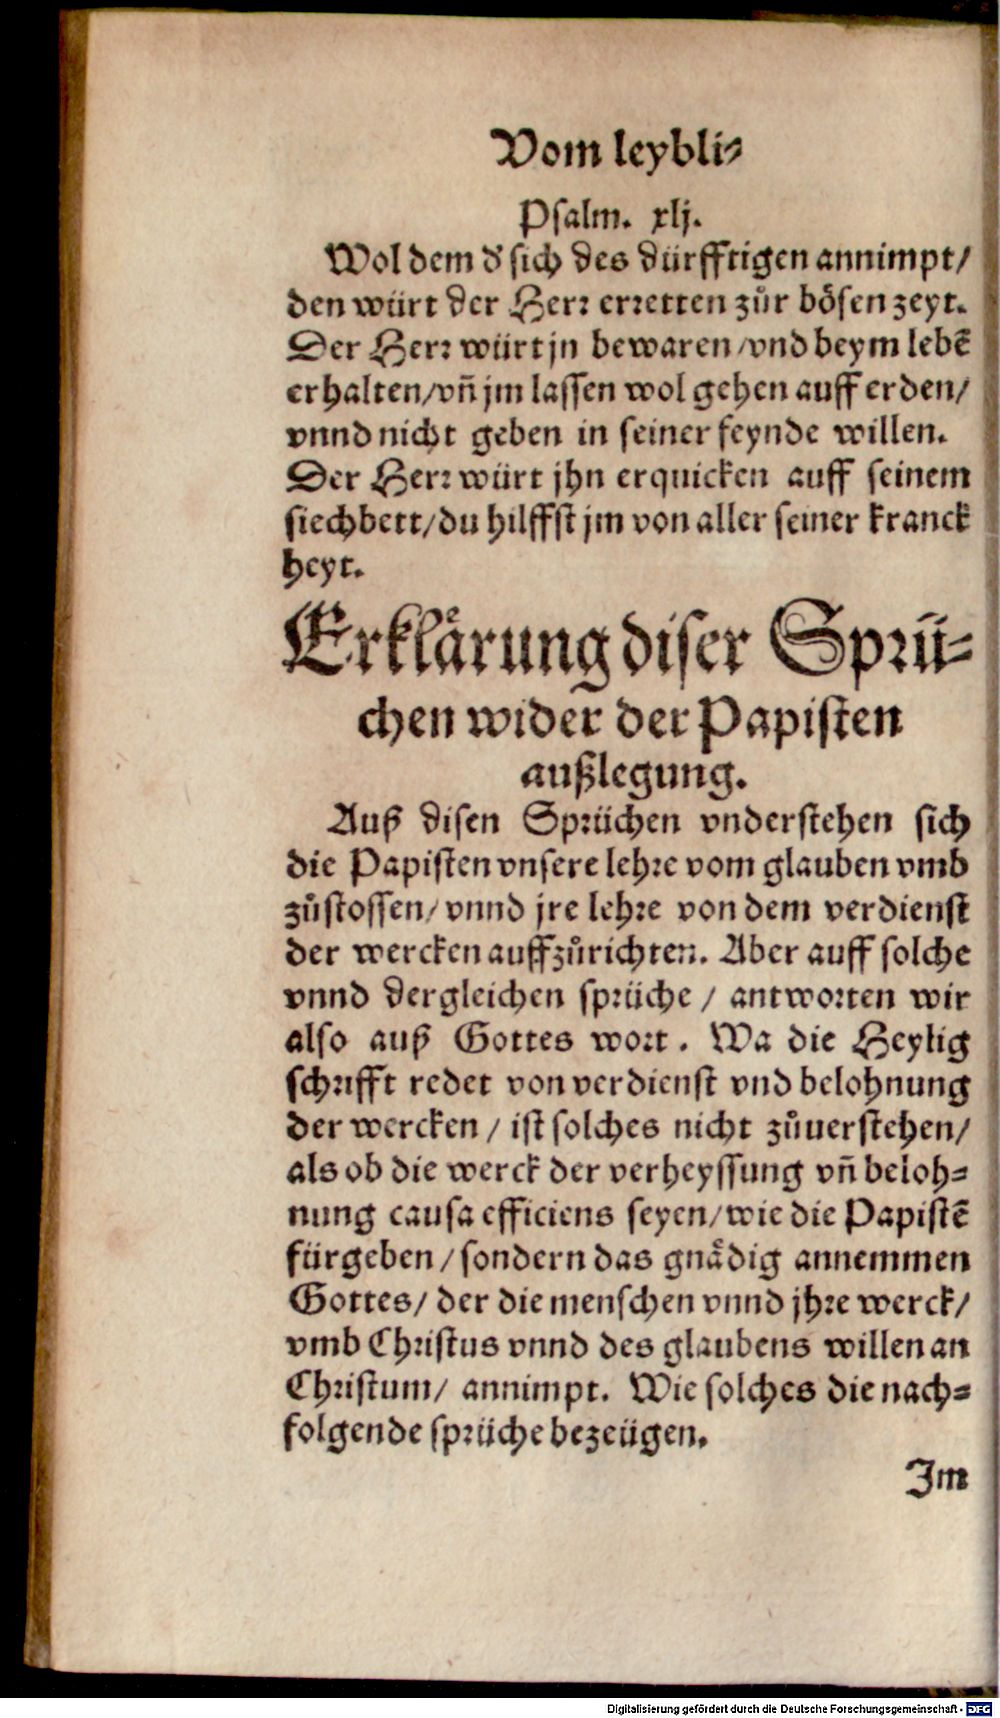 Vom leybli⸗
Psalm. xlj.
Wol dem d' sich des dürfftigen annimpt/
den würt der Herr erretten zůr bösen zeyt.
Der Herr würt jn bewaren/vnd beym lebē
erhalten/vñ jm lassen wol gehen auff erden/
vnnd nicht geben in seiner feynde willen.
Der Herr würt jhn erquicken auff seinem
siechbett/du hilffst jm von aller seiner kranck
heyt.
Erklärung diser Sprü⸗
chen wider der Papisten
außlegung.
Auß disen Sprüchen vnderstehen sich
die Papisten vnsere lehre vom glauben vmb
zůstossen/vnnd jre lehre von dem verdienst
der wercken auffzůrichten. Aber auff solche
vnnd dergleichen sprüche / antworten wir
also auß Gottes wort. Wa die Heylig
schrifft redet von verdienst vnd belohnung
der wercken / ist solches nicht zůuerstehen/
als ob die werck der verheyssung vñ beloh⸗
nung causa efficiens seyen/wie die Papistē
fürgeben/sondern das gnädig annemmen
Gottes/ der die menschen vnnd jhre werck/
vmb Christus vnnd des glaubens willen an
Christum/ annimpt. Wie solches die nach⸗
folgende sprüche bezeügen.
Im
Digitalisierung gefördert durch die Deutsche Forschungsgemeinschaft - DFG